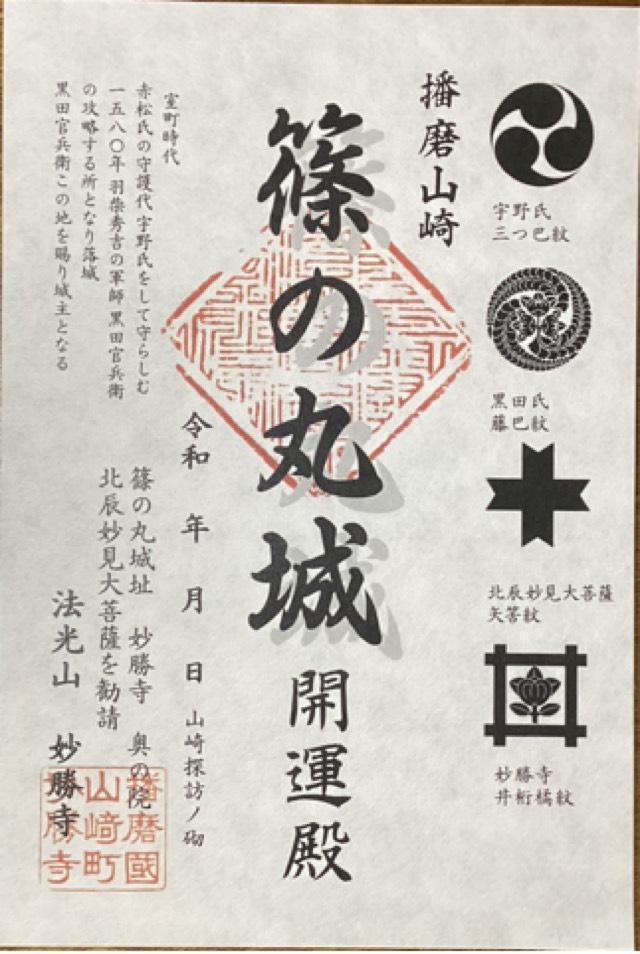 宇野氏
三つ巴紋
黒田氏
藤巴紋
北辰妙見大菩薩
矢筈紋
妙勝寺
井桁橘紋
播磨山崎
篠の丸城
開運殿
令和 年 月 日 山崎探訪ノ砌
室町時代
赤松氏の守護代 宇野氏をして守らしむ
一五八〇年 羽柴秀吉の軍師 黒田官兵衛
の攻略する所となり落城
黒田官兵衛この地を賜り城主となる
篠の丸城址 妙勝寺 奥の院
北辰妙見大菩薩を勧請
法光山 妙勝寺
播磨國
山﨑町
妙勝寺